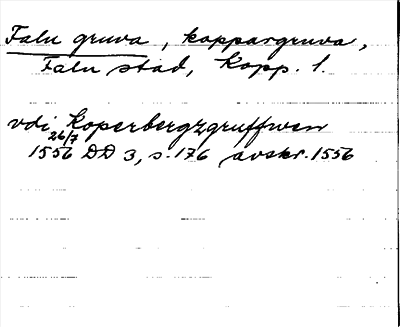 Falu gruva, koppargruva,
Falu stad, Kopp. l.
vdi Koperbergzgruffwen
26/7
1556 DD 3, s. 176 avskr. 1556